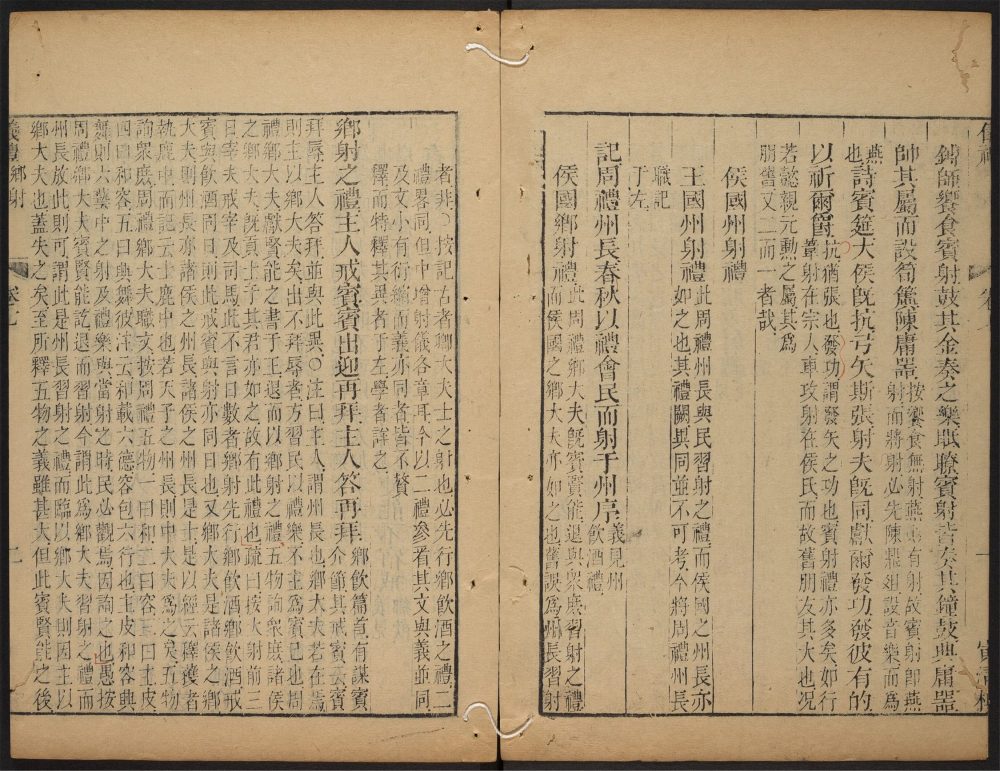 鎛師饗食賓射鼓其金奏之樂眡瞭賓射皆奏其鐘鼓典庸器
帥其屬而設筍簴陳庸器
按饗食無射燕
有射故賓射即燕
射而將射必先陳鼎俎設音樂而為
燕
也
詩賓筵大侯既抗弓矢斯張射夫既同獻爾發功發彼有的
以祈爾爵
抗猶張也發功謂發矢之功也賓射禮亦多矣如行
葦射在宗人車攻射在侯氏而故舊朋友其大也況
若懿親元勲之屬其為
朋舊又二而一者哉
侯國州射禮
王國州射禮
此周禮州長與民習射之禮而侯國之州長亦
如之也其禮闕畀同並不可考今將周禮州長
職記
于左
記周禮州長春秋以禮會民而射于州序
義見州
飲酒禮
侯國鄉射禮
此周禮鄉大夫既賓賢能退與衆庶習射之禮
而侯國之鄉大夫亦如之也舊誤為州長習射
者非○按記古者卿大夫士之射也必先行鄉飲酒之禮二
禮畧同但中增射儀各章耳今以二禮參看其文與義並同
及文小有衍縮而義亦同者皆不贅
釋而特釋其異者于左學者詳之
鄉射之禮主人戒賓賓出迎再拜主人答再拜
鄉飲篇首有謀賓
介節其戒賓云賓
拜辱主人答拜並與此異○注曰主人謂州長也鄉大夫若在焉
則主以鄉大夫矣出不拜辱者方習民以禮樂不主為賓已也周
禮鄉大夫獻賢能之書于王退而以鄉射之禮五物詢衆庶諸侯
之鄉大夫既貢士于其君亦如之故有此射禮也疏曰按大射前三
日宰夫戒宰及司馬此不言日數者鄉射先行鄉飲酒鄉飲酒戒
賓與飲酒同日則此戒賓與射亦同日也又鄉大夫是諸侯之鄉
大夫則州長亦諸侯之州長諸侯之州長是士是以經云釋獲者
執鹿中而記云士鹿中也若天子之州長則中大夫為之矣五物
詢衆庶周禮鄉大夫職文按周禮五物一曰和二曰容三曰主皮
四曰和容五曰與舞彼注云和載六德容包六行也主皮和容興
舞則六藝中之射及禮樂與當射之時民必觀焉因詢之也愚按
周禮鄉大夫賓賢能訖退而習射今謂此為鄉大夫習射之禮而
州長放此則可謂此是州長習射之禮而臨以鄉大夫則因主以
鄉大夫也蓋失之矣至所釋五物之義雖甚大但此賓賢能之後